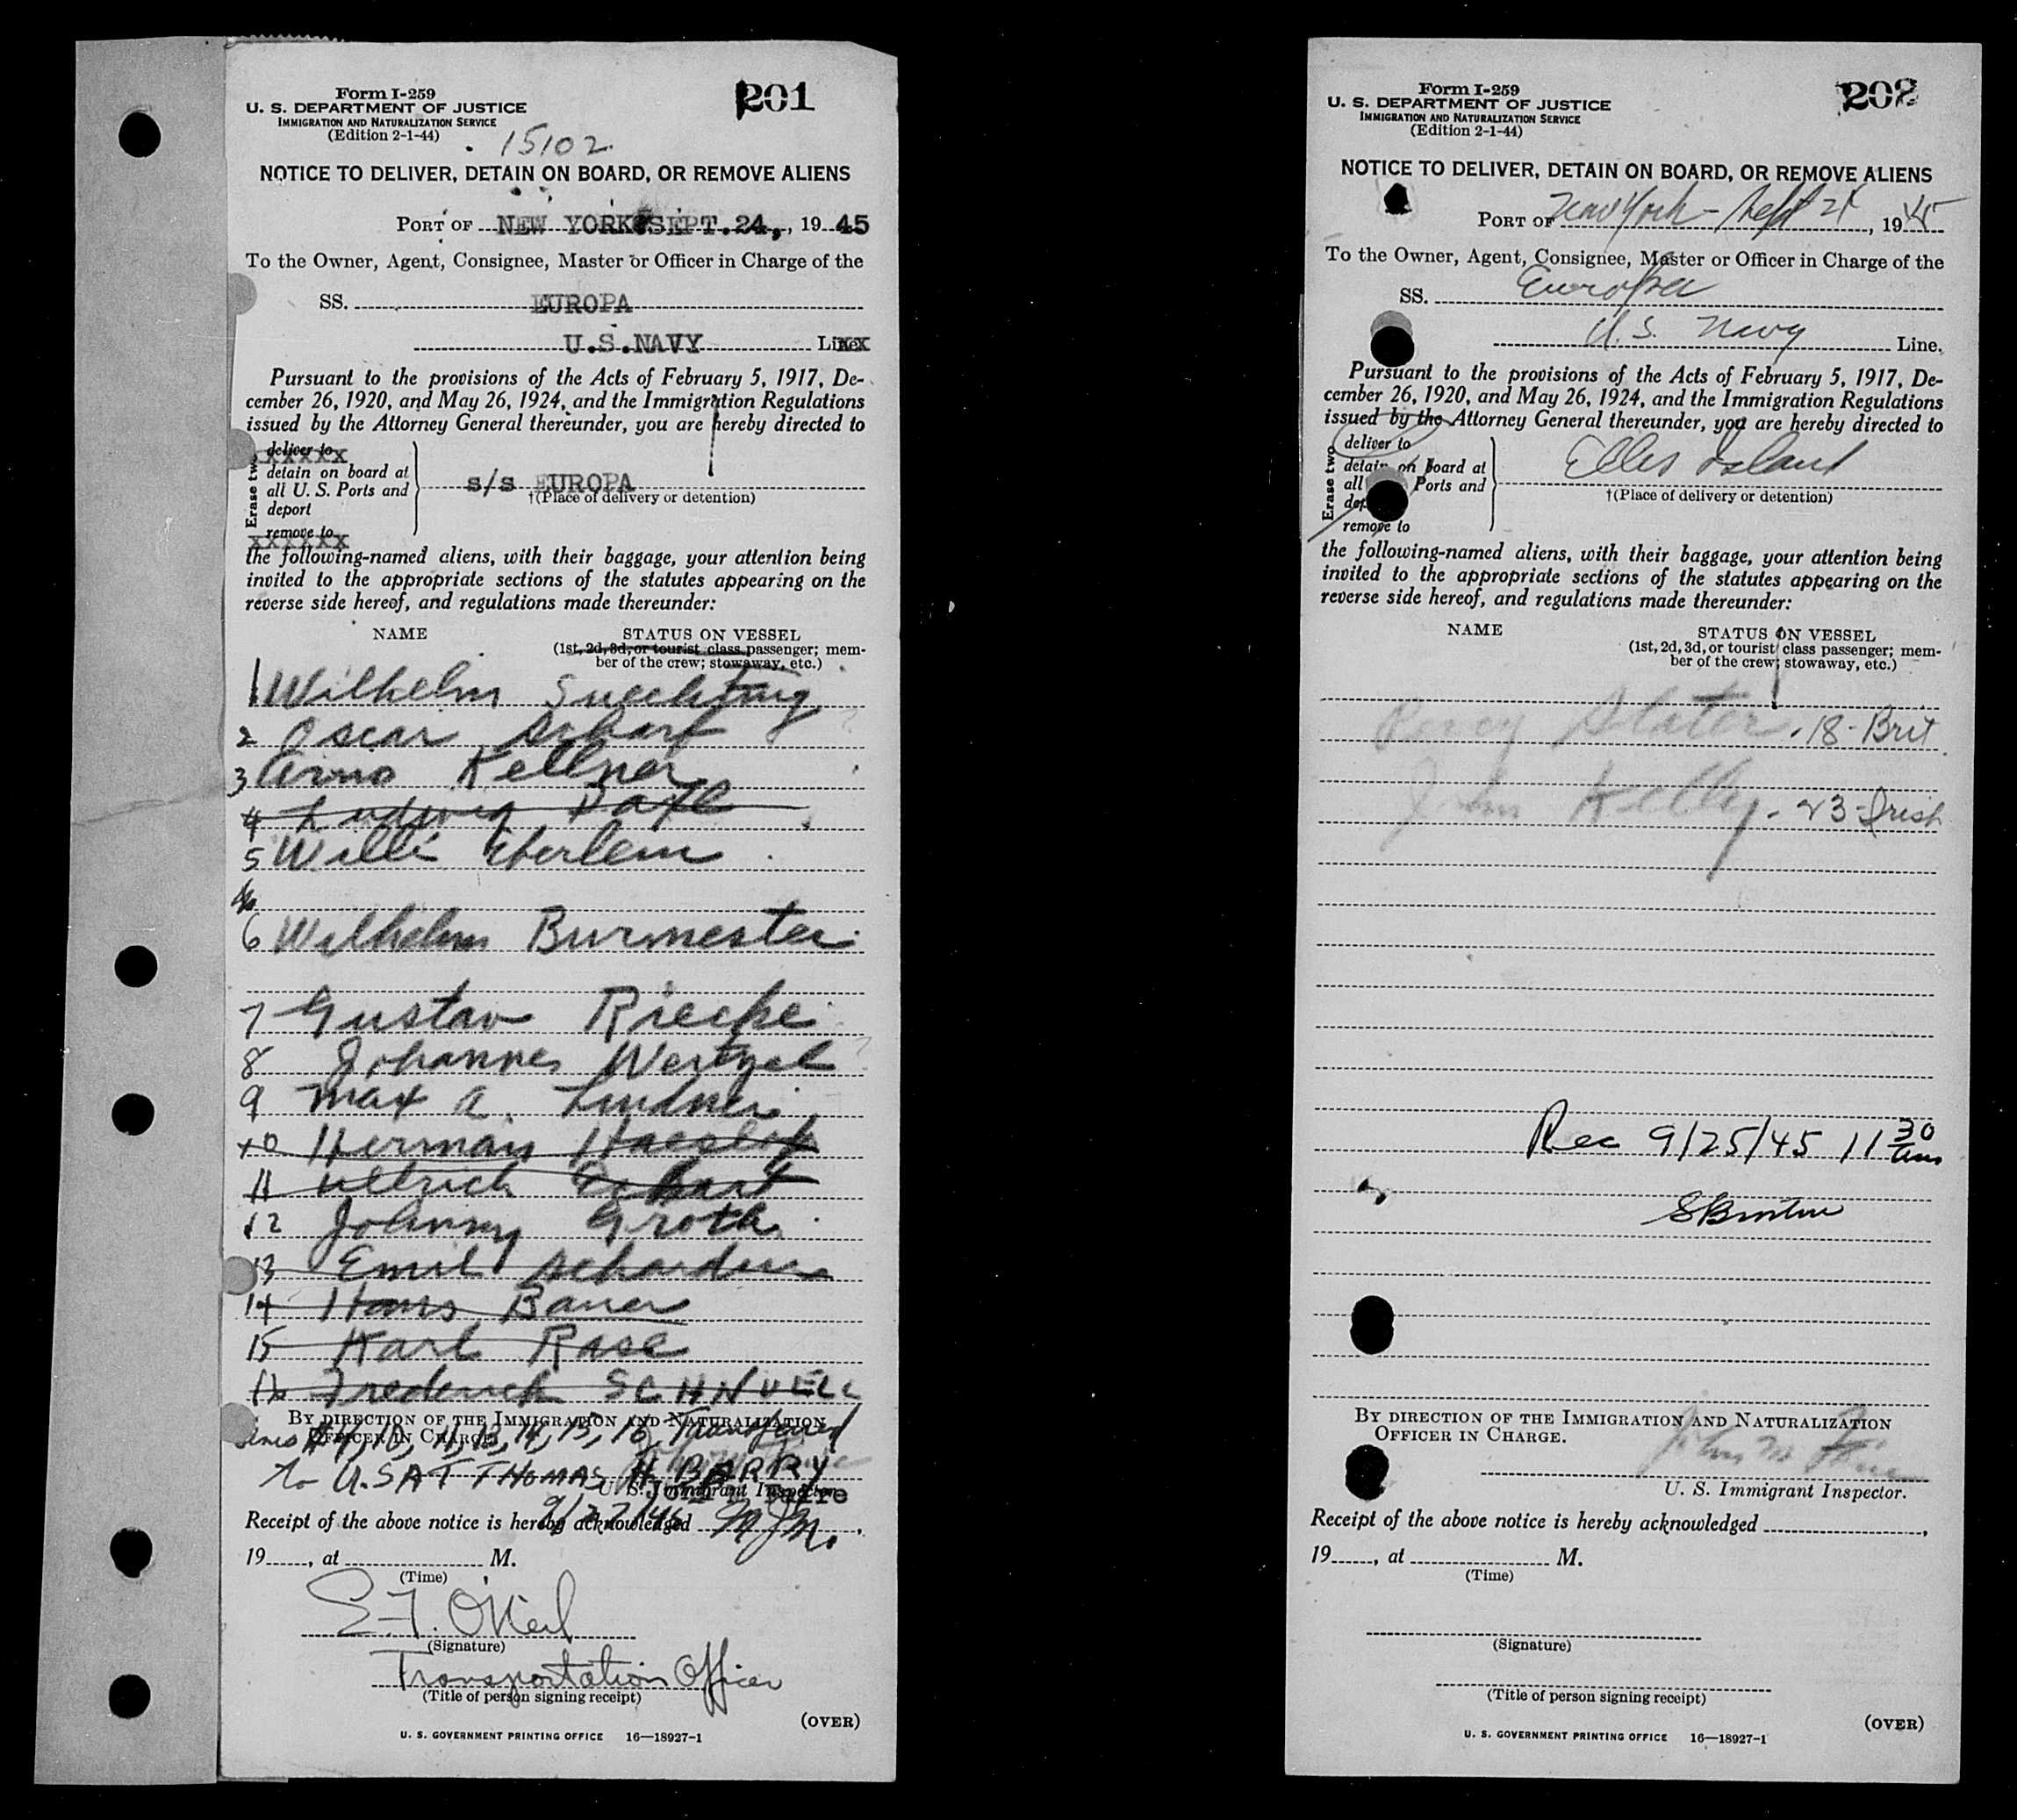 Form I-259
U. S. DEPARTMENT OF JUSTICE
IMMIGRATION AND NATURALIZATION SERVICE
(Edition 2-1-44)
201
15102
NOTICE TO DELIVER, DETAIN ON BOARD, OR REMOVE ALIENS
PORT OF NEW YORK SEPT.24, , 19 45
To the Owner, Agent, Consignee, Master or Officer in Charge of the
SS. EUROPA
U.S.NAVY Line
Pursuant to the provisions of the Acts of February 5, 1917, De-
cember 26, 1920, and May 26, 1924, and the Immigration Regulations
issued by the Attorney General thereunder, you are hereby directed to
Erase two
deliver to
detain on board at
all U. S. Ports and
deport
remove to
s/s EUROPA
†(Place of delivery or detention)
the following-named aliens, with their baggage, your attention being
invited to the appropriate sections of the statutes appearing on the
reverse side hereof, and regulations made thereunder:
NAME STATUS ON VESSEL
(1st, 2d, 3d, or tourist class passenger; mem-
ber of the crew; stowaway, etc.)
1 Wilhelm
2 Oscar Scharf
3 Arno Kellner
4 Ludwig
5 Willi Eberlein
6 Wilhelm Burmester
7 Gustav Riecke
8 Johannes Wertzel
9 Max A. Lindner
10 Herman
11 Ullrich
12 Johnny Groth
13 Emil
14 Hans Bauer
15 Karl Rase
16 Frederick SCHNUELL
BY DIRECTION OF THE IMMIGRATION AND NATURALIZATION
OFFICER IN CHARGE.
Lines #4, 10, 11, 13, 14, 15, 16 Transferred
to U.S.A.T THOMAS H BARRY
U. S. Immigrant Inspector.
Receipt of the above notice is hereby acknowledged MJM.
19 , at M.
(Time)
E.F. O'Neil
(Signature)
Transportation Officer
(Title of person signing receipt)
(OVER)
U. S. GOVERNMENT PRINTING OFFICE 16—18927-1
Form I-259
U. S. DEPARTMENT OF JUSTICE
IMMIGRATION AND NATURALIZATION SERVICE
(Edition 2-1-44)
202
NOTICE TO DELIVER, DETAIN ON BOARD, OR REMOVE ALIENS
PORT OF New York - Sept 24 , 19 45
To the Owner, Agent, Consignee, Master or Officer in Charge of the
SS. Europa
U. S. Navy Line.
Pursuant to the provisions of the Acts of February 5, 1917, De-
cember 26, 1920, and May 26, 1924, and the Immigration Regulations
issued by the Attorney General thereunder, you are hereby directed to
Erase two
deliver to
detain on board at
all Ports and
remove to
Ellis Island
†(Place of delivery or detention)
the following-named aliens, with their baggage, your attention being
invited to the appropriate sections of the statutes appearing on the
reverse side hereof, and regulations made thereunder:
NAME STATUS ON VESSEL
(1st, 2d, 3d, or tourist class passenger; mem-
ber of the crew; stowaway, etc.)
Percy Slater - 18 - Brit.
John Kelly - 23 - Irish
Rec 9/25/45 11 30 am
BY DIRECTION OF THE IMMIGRATION AND NATURALIZATION
OFFICER IN CHARGE.
U. S. Immigrant Inspector.
Receipt of the above notice is hereby acknowledged ,
19 , at M.
(Time)
(Signature)
(Title of person signing receipt)
(OVER)
U. S. GOVERNMENT PRINTING OFFICE 16—18927-1